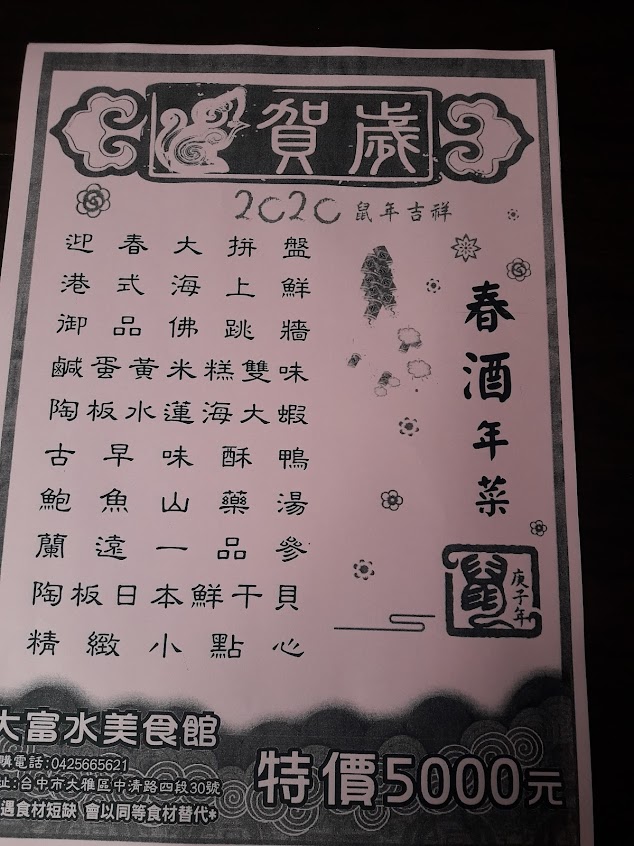 賀歲
2020 鼠年吉祥
迎春大拼盤
港式海上鮮
御品佛跳牆
鹹蛋黃米糕雙味
陶板水蓮海大蝦
古早味酥鴨
鮑魚山藥湯
蘭遠一品參
陶板日本鮮干貝
精緻小點心
春酒年菜
鼠
庚子年
大富水美食館
購電話:0425665621
址:台中市大雅區中清路四段30號
遇食材短缺 會以同等食材替代*
特價5000元